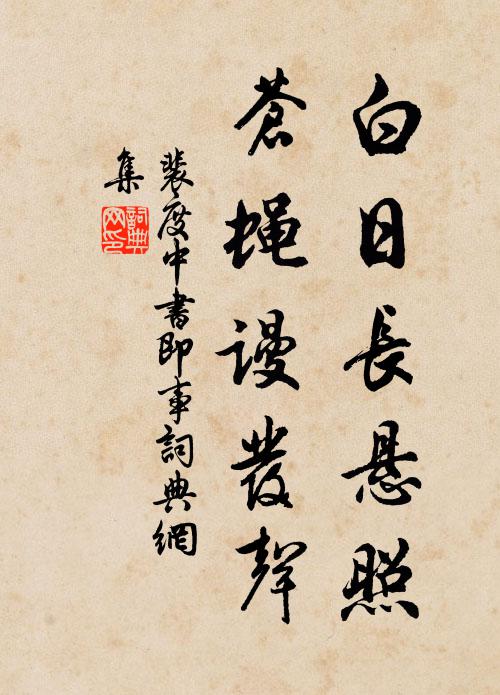 白日長悬照
蒼蝇謾發聲
裴度中書即事詞典網
集
詞典
网印